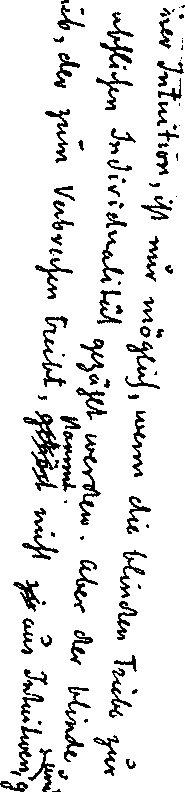 iner Intuition, ist nur möglich, wenn die blinden Triebe zur
menschlichen Individualität gezählt werden. Aber der blinde
ieb, der zum Verbrechen treibt, stammt nicht aus Intuitivem,